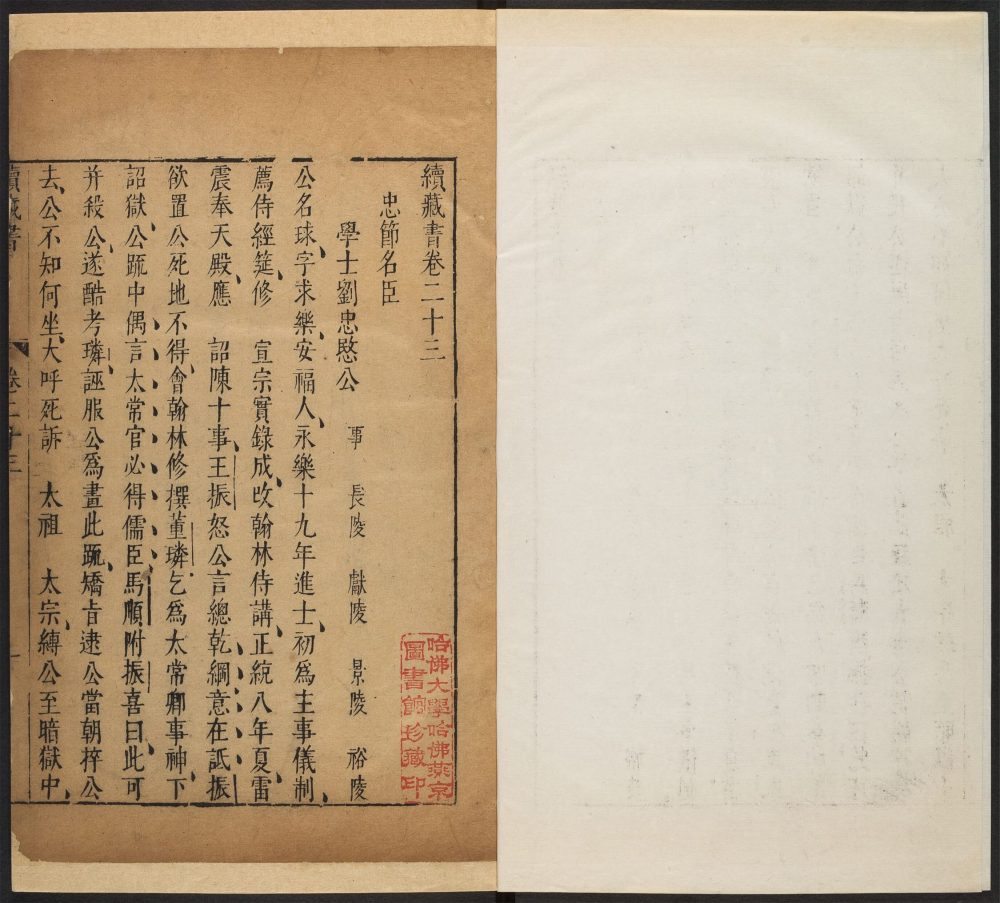 續藏書卷二十三
忠節名臣
學士劉忠愍公　事　長陵　獻陵　景陵　裕陵
公名球、字求樂、安福人、永樂十九年進士、初爲主事儀制、
薦侍經筵、修　宣宗實錄成、改翰林侍講、正統八年夏、雷
震奉天殿、應　詔陳十事、王振怒公言總乾綱意在詆振
欲置公死地不得、會翰林修撰董璘乞爲太常卿事神、下
詔獄、公䟽中偶言太常官必得儒臣、馬順附振喜曰、此可
并殺公、遂酷考璘、誣服公爲畫此䟽、矯旨逮公當朝捽公
去、公不知何坐、大呼死訴　太祖　太宗、縛公至暗獄中、
續藏書　卷二十三　一
哈佛大學哈佛燕京
圖書館珍藏印